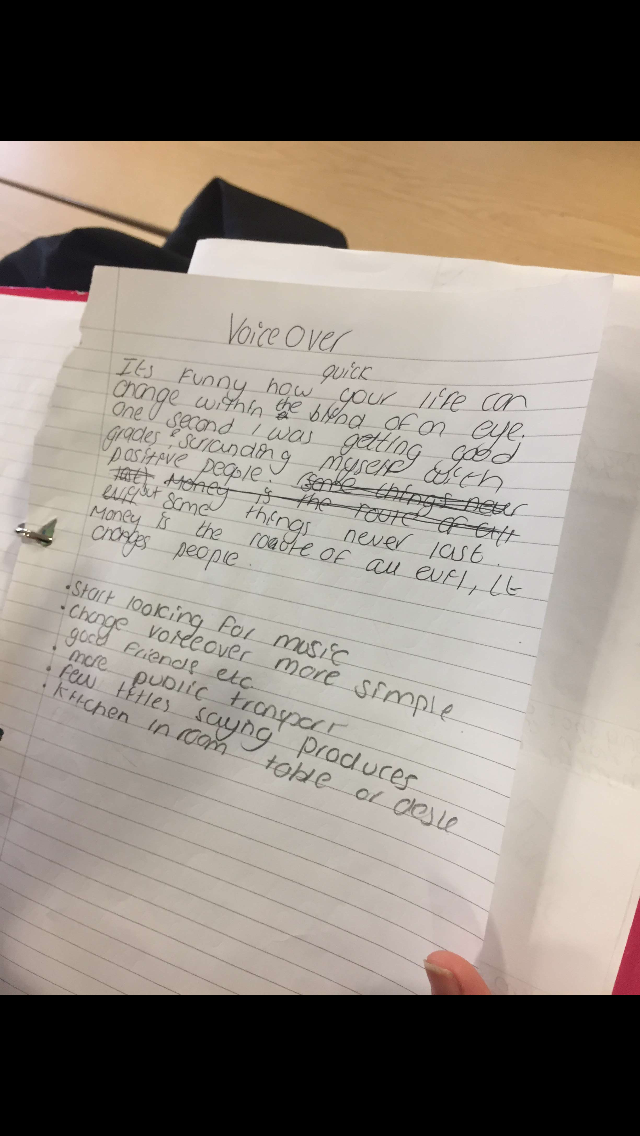 Voice Over
quick
Its funny how your life can
change within the blind of an eye.
one second I was getting good
grades & surranding myself with
positive people. some things never
last Money is the route of all
but some things never last.
Money is the route of all evil, it
changes people.
• Start looking for music
• change voiceover more simple
good friends etc
• more public transport
• few titles sayng produces
• kitchen in room table or desk